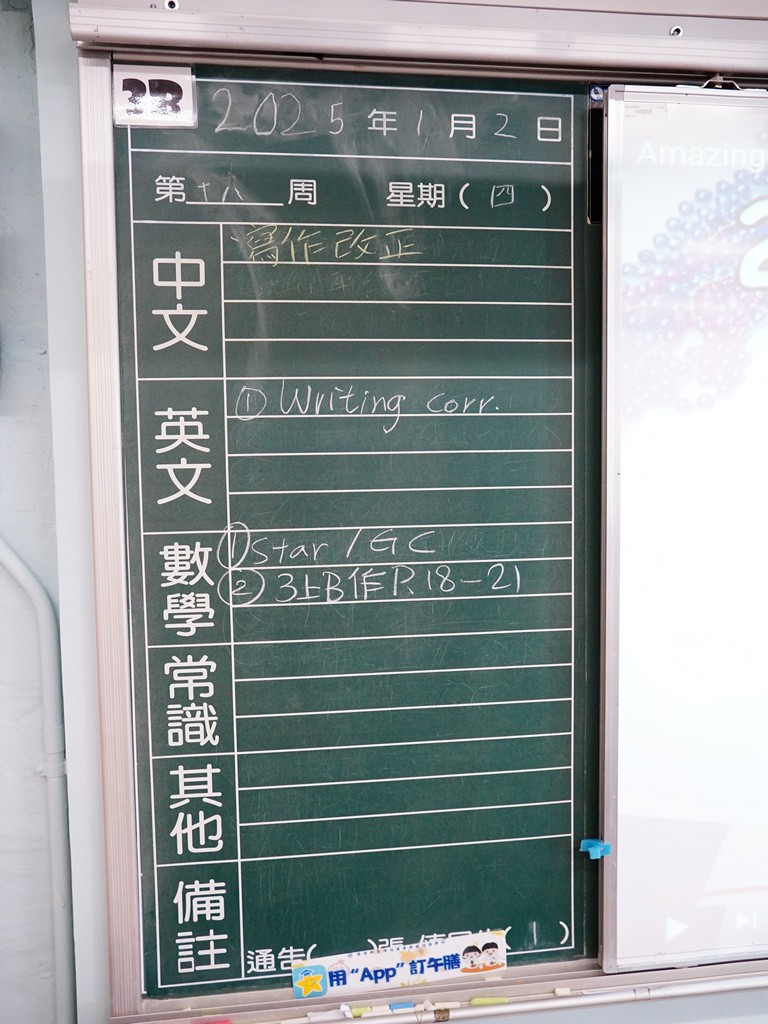 3B
2025年1月2日
第十八周 星期(四)
中文
寫作改正
英文
① Writing corr.
數學
① Star / GC
② 3上B作P.18-21
常識
其他
備註
通告( )張
用“App”訂午膳
Amazing